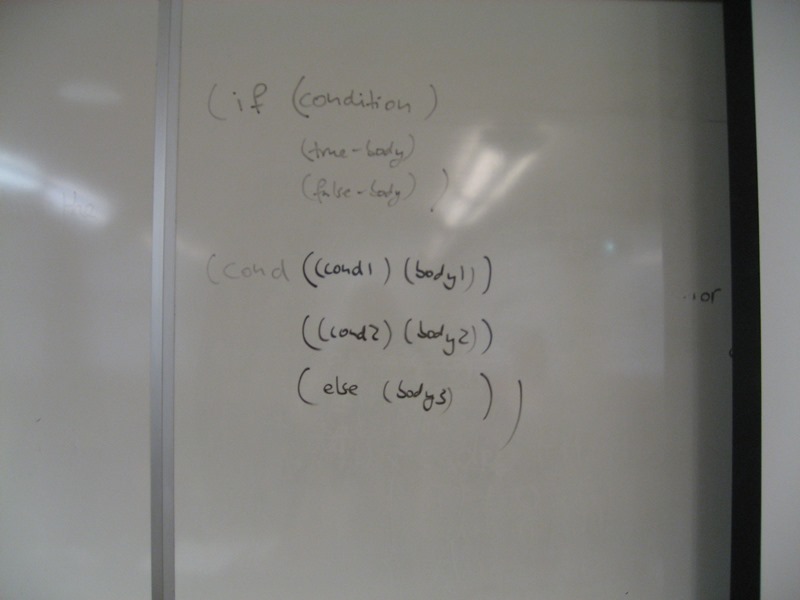 (if (condition)
(true-body)
(false-body))
(cond ((cond1) (body1))
((cond2) (body2))
(else (body3)))
or